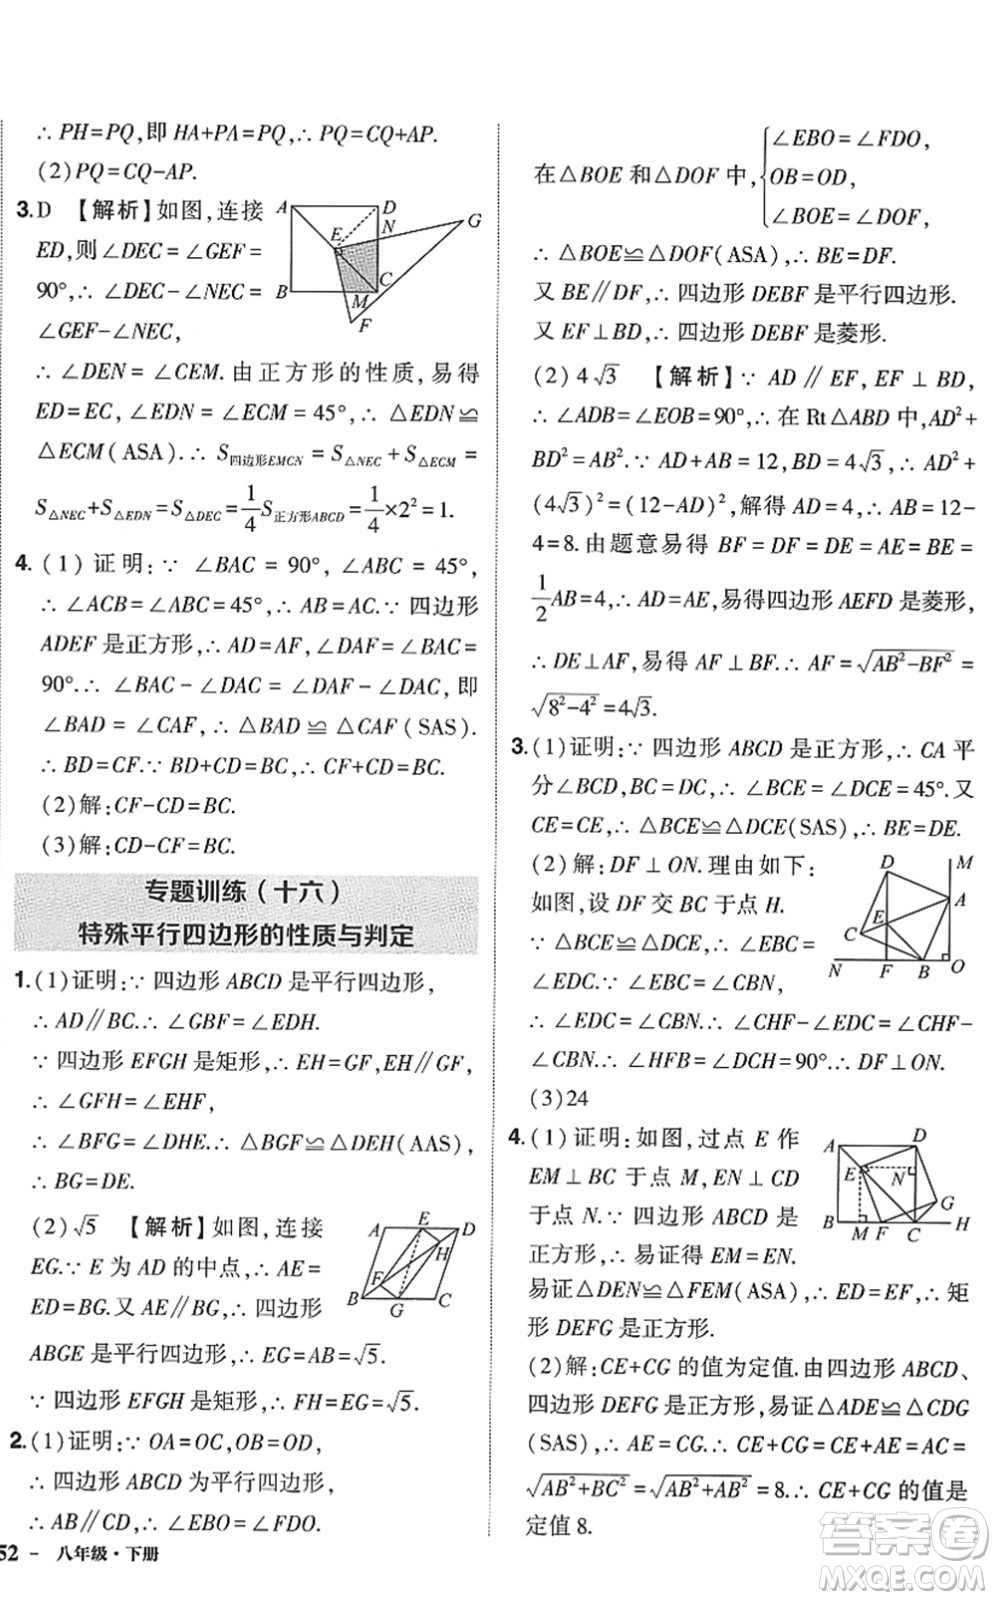 ∴ PH=PQ,即 HA+PA=PQ,∴ PQ=CQ+AP.
(2)PQ=CQ-AP.
3.D 【解析】如图,连接
ED,则 ∠DEC = ∠GEF =
90°,∴ ∠DEC - ∠NEC =
∠GEF-∠NEC,
∴ ∠DEN = ∠CEM. 由正方形的性质,易得
ED=EC, ∠EDN = ∠ECM = 45°, ∴ △EDN≌
△ECM(ASA).∴ S四边形EMCN = S△NEC+S△ECM =
S△NEC+S△EDN=S△DEC=1/4S正方形ABCD=1/4×2²=1.
A D N G E B M C F
4.(1)证明:∵ ∠BAC = 90°, ∠ABC = 45°,
∴ ∠ACB = ∠ABC=45°,∴ AB=AC.∵ 四边形
ADEF 是正方形,∴ AD=AF,∠BAC=∠DAF=
90°.∴ ∠BAC - ∠DAC = ∠DAF - ∠DAC,即
∠BAD = ∠CAF,∴ △BAD ≌ △CAF(SAS).
∴ BD=CF.∵ BD+CD=BC,∴ CF+CD=BC.
(2)解:CF-CD=BC.
(3)解:CD-CF=BC.
专题训练(十六)
特殊平行四边形的性质与判定
1.(1)证明:∵ 四边形 ABCD 是平行四边形,
∴ AD∥BC.∴ ∠GBF=∠EDH.
∵ 四边形 EFGH 是矩形,∴ EH=GF,EH∥GF,
∴ ∠GFH=∠EHF,
∴ ∠BFG=∠DHE.∴ △BGF≌△DEH(AAS),
∴ BG=DE.
(2)√5 【解析】如图,连接
EG.∵ E 为 AD 的中点,∴ AE=
ED=BG.又 AE∥BG,∴ 四边形
ABGE 是平行四边形.∴ EG=AB=√5.
A E D H F B G C
∵ 四边形 EFGH 是矩形,∴ FH=EG=√5.
2.(1)证明:∵ OA=OC,OB=OD,
∴ 四边形 ABCD 为平行四边形,
∴ AB∥CD,∴ ∠EBO=∠FDO.
52 - 八年级·下册
在△BOE 和△DOF 中,{∠EBO=∠FDO,
OB=OD,
∠BOE=∠DOF,
∴ △BOE≌△DOF(ASA),∴ BE=DF.
又 BE∥DF,∴ 四边形 DEBF 是平行四边形.
又 EF⊥BD,∴ 四边形 DEBF 是菱形.
(2)4√3 【解析】∵ AD∥EF,EF⊥BD,
∴ ∠ADB=∠EOB=90°,∴ 在 Rt△ABD 中,AD²+
BD²=AB².∵ AD+AB=12,BD=4√3,∴ AD²+
(4√3)²=(12-AD)²,解得 AD=4,∴ AB=12-
4=8.由题意易得 BF=DF=DE=AE=BE=
1/2AB=4,∴ AD=AE,易得四边形 AEFD 是菱形,
∴ DE⊥AF,易得 AF⊥BF.∴ AF=√(AB²-BF²)=
√(8²-4²)=4√3.
3.(1)证明:∵ 四边形 ABCD 是正方形,∴ CA 平
分∠BCD,BC=DC,∴ ∠BCE=∠DCE=45°.又
CE=CE,∴ △BCE≌△DCE(SAS),∴ BE=DE.
(2)解:DF⊥ON.理由如下:
如图,设 DF 交 BC 于点 H.
∵ △BCE≌△DCE,∴ ∠EBC=
∠EDC.∵ ∠EBC = ∠CBN,
∴ ∠EDC=∠CBN.∴ ∠CHF-∠EDC=∠CHF-
∠CBN.∴ ∠HFB=∠DCH=90°.∴ DF⊥ON.
(3)24
D M A E C N F B O
4.(1)证明:如图,过点 E 作
EM⊥BC 于点 M,EN⊥CD
于点 N.∵ 四边形 ABCD 是
正方形,∴ 易证得 EM=EN.
易证△DEN≌△FEM(ASA),∴ ED=EF,∴ 矩
形 DEFG 是正方形.
A D E N G B M F C H
(2)解:CE+CG 的值为定值.由四边形 ABCD、
四边形 DEFG 是正方形,易证△ADE≌△CDG
(SAS),∴ AE=CG.∴ CE+CG=CE+AE=AC=
√(AB²+BC²)=√(AB²+AB²)=8.∴ CE+CG 的值是
定值 8.
答案卷
MXQE.COM